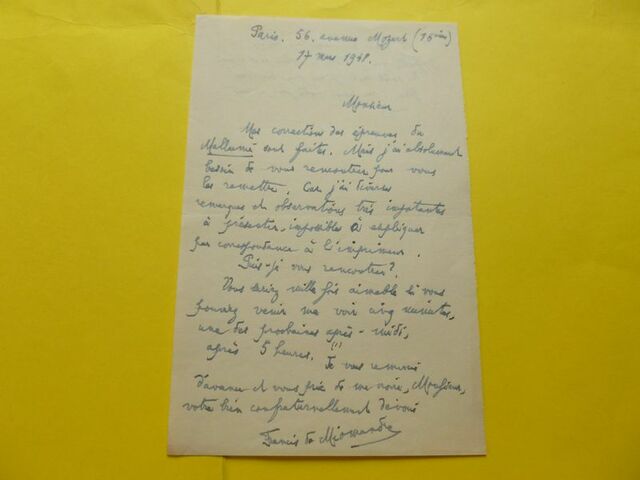 Paris. 56, avenue Mozart (16ème)
17 mars 1948.
Monsieur
Mes corrections des épreuves du
Mallarmé sont faites. Mais j'ai absolument
besoin de vous rencontrer pour vous
les remettre. Car j'ai diverses
remarques et observations très importantes
à présenter, impossibles à expliquer
par correspondance à l'imprimeur.
Puis-je vous rencontrer?
Vous seriez mille fois aimable si vous
pouviez venir me voir cinq minutes,
une des prochaines après-midi,
après 5 heures. (1)
Je vous remercie
d'avance et vous prie de me croire, Monsieur,
votre bien confraternellement dévoué
Francis de Miomandre